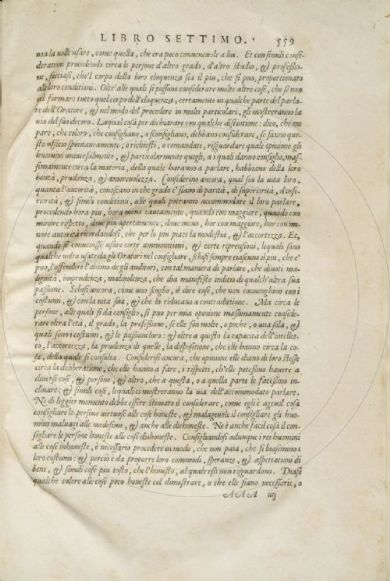 LIBRO SETTIMO. 559
non la volle usare, come quella, che era poco convenevole a lui. Et con simili consi-
derationi procedendo circa le persone d'altro grado, d'altro studio, & professio-
ne, facciasi, che'l corpo della loro eloquenza sia il più, che si può, proportionato
alle loro conditioni. Oltr'alle quali si possono considerare molte altre cose, che se non
nel formare tutto quel corpo dell'eloquenza, certamente in qualche parte del parla-
re dell'Oratore, & nel modo del procedere in molti particolari, gli mostreranno la
via del suo decoro. La qual cosa per dichiarare con qualche distintione: dico, che
pare, che coloro, che consigliano, o sconsigliano, debbano considerare, se fanno que-
sto ufficio spontaneamente, o richiesti, o comandati, riguardare quale opinione gli
huomini universalmente, & particolarmente quegli, a i quali danno consiglio, mas-
simamente circa la materia, della quale haranno a parlare, habbiano della loro
bontà, prudenza, & amorevolezza. Considerino ancora, qual sia la vita loro,
quanta l'autorità, conoscano in che grado e' siano di parità, di superiorità, d'infe-
riorità, & simili conditioni, alle quali potranno accommodare il loro parlare,
procedendo hora più, hora meno cautamente, quando con maggiore, quando con
minore rispetto, dove più apertamente, dove meno, hor con maggiore, hor con mi-
nore autorità ricordandosi, che per lo più piace la modestia, & l'accortezza. Et
quando si convenisse usare certe ammonitioni, & certe riprensioni, le quali sono
qualche volta usate da gli Oratori nel consigliare, schifi sempre ciascuno il più, che e'
può, l'offendere l'animo degli auditori, con tal maniera di parlare, che dinoti ma-
lignità, imprudenza, malivolenza, che dia manifesto indicio di qualch'altra sua
passione. Schifi ancora, come uno scoglio, il dire cose, che non convenghino co'i
costumi, & con la vita sua, & che lo riducano a contradittione. Ma circa le
persone, alle quali si da consiglio, si può per mia openione massimamente conside-
rare oltra l'età, il grado, la professione, se elle sin molte, o poche, o una sola, &
quali siano i costumi, & le passioni loro: & oltre a questo la capacità dell'intellet-
to, l'accortezza, la prudenza di quelle, la dispositione, che elle hanno circa la co-
sa, della quale si consulta. Considerisi ancora, che opinione elle diano di loro stesse
circa la deliberatione, che elle hanno a fare, i rispetti, ch'elle potessino havere a
diverse cose, & persone, & altro, che a questa, o a quella parte le facessino in-
clinare: & simili cose, le quali ci mostreranno la via dell'accommodato parlare.
Ne di leggier momento debbe essere stimato il considerare, come egli è agevol cosa
consigliare le persone virtuose alle cose honeste, & malagevole il consigliare gli huo-
mini malvagi alle medesime, & anche alle dishoneste. Nè è anche facil cosa il con-
sigliare le persone honeste alle cose dishoneste. Consigliandosi adunque i rei huomini
alle cose inhoneste, è necessario procedere in modo, che non paia, che si biasimino i
loro costumi: & perciò è da proporre loro commodi, speranze, & aspettationi di
beni, & simili cose più tosto, che l'honesto, al quale essi non riguardono. Diasi
qualche colore alle cose poco honeste col dimostrare, o che elle siano necessarie, o
AAA iij